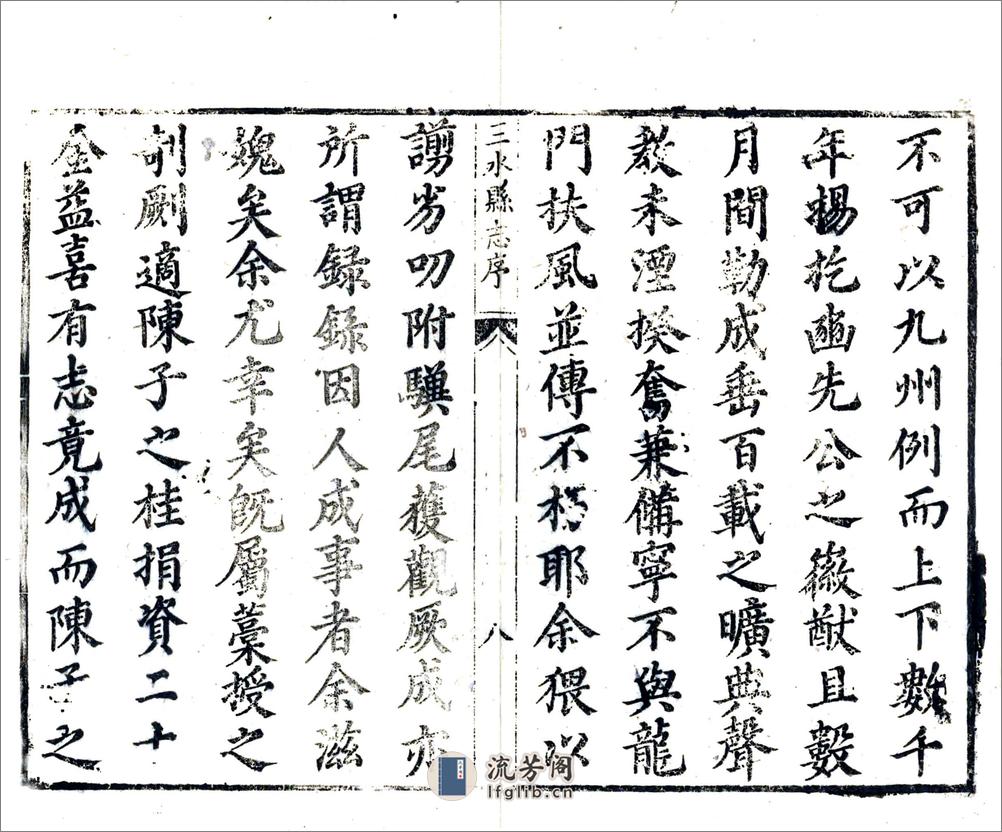 不可以九州例而上下數千
年揚扢豳先公之徽猷且數
月間勒成垂百載之曠典聲
教未湮揆奮兼備寧不與龍
門扶風並傳不朽耶余猥以
三水縣志序 八
謭劣叨附驥尾獲觀厥成亦
所謂録録因人成事者余滋
媿矣余尤幸矣既屬藁授之
剞劂適陳子之桂捐資二十
金益喜有志竟成而陳子之
流芳阁
lfglib.cn